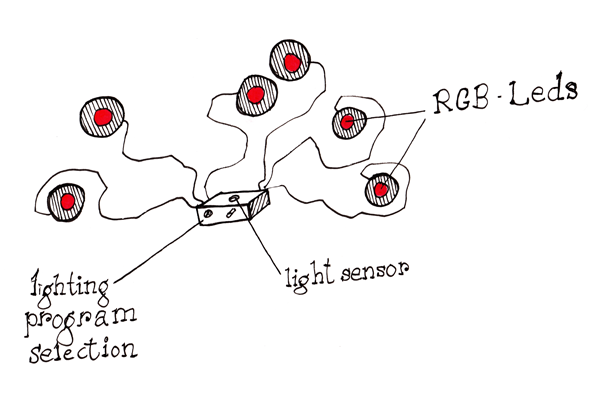 RGB-Leds
light sensor
lighting
program
selection